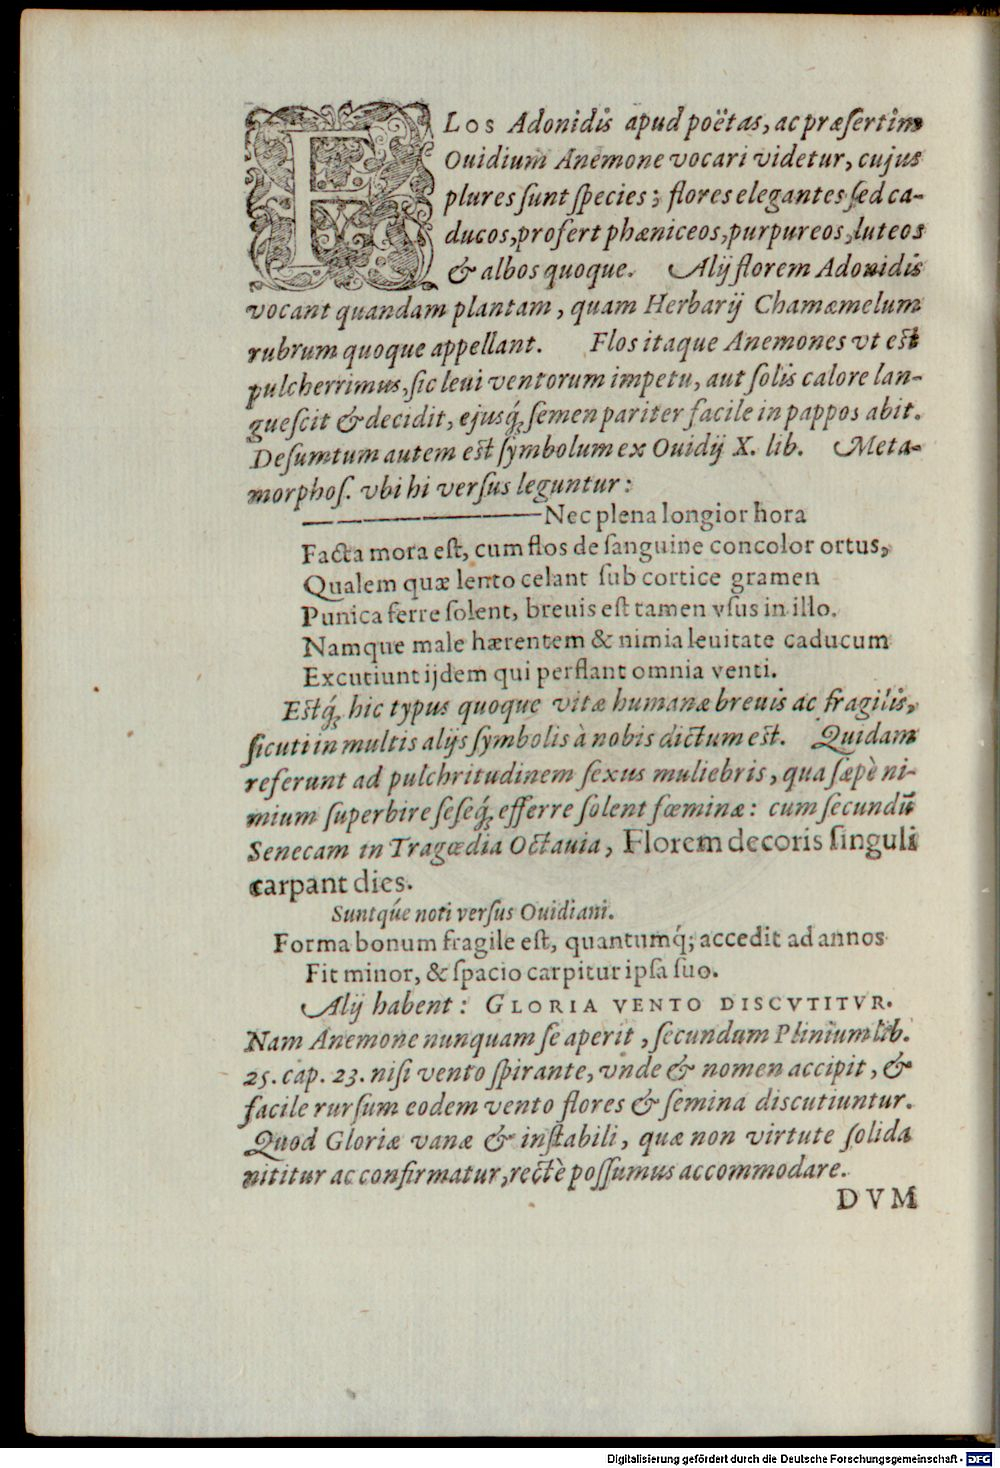 FLOS Adonidis apud poëtas, ac præsertim
Ouidium Anemone vocari videtur, cujus
plures sunt species; flores elegantes sed ca-
ducos, profert phæniceos, purpureos, luteos
& albos quoque. Alij florem Adonidis
vocant quandam plantam, quam Herbarij Chamæmelum
rubrum quoque appellant. Flos itaque Anemones vt est
pulcherrimus, sic leui ventorum impetu, aut solis calore lan-
guescit & decidit, ejusq́, semen pariter facile in pappos abit.
Desumtum autem est symbolum ex Ouidij X. lib. Meta-
morphos. vbi hi versus leguntur:
——————— Nec plena longior hora
Facta mora est, cum flos de sanguine concolor ortus,
Qualem quæ lento celant sub cortice gramen
Punica ferre solent, breuis est tamen vsus in illo.
Namque male hærentem & nimia leuitate caducum
Excutiunt ijdem qui perflant omnia venti.
Estq́, hic typus quoque vitæ humanæ breuis ac fragilis,
sicuti in multis alijs symbolis à nobis dictum est. Quidam
referunt ad pulchritudinem sexus muliebris, qua sæpè ni-
mium superbire seseq́, efferre solent fœminæ: cum secundũ
Senecam in Tragœdia Octauia, Florem decoris singuli
carpant dies.
Suntq́ue noti versus Ouidiani.
Forma bonum fragile est, quantumq́; accedit ad annos
Fit minor, & spacio carpitur ipsa suo.
Alij habent: GLORIA VENTO DISCVTITVR.
Nam Anemone nunquam se aperit, secundum Plinium lib.
25. cap. 23. nisi vento spirante, vnde & nomen accipit, &
facile rursum eodem vento flores & semina discutiuntur.
Quod Gloriæ vanæ & instabili, quæ non virtute solida
nititur ac confirmatur, rectè possumus accommodare.
DVM
Digitalisierung gefördert durch die Deutsche Forschungsgemeinschaft - DFG